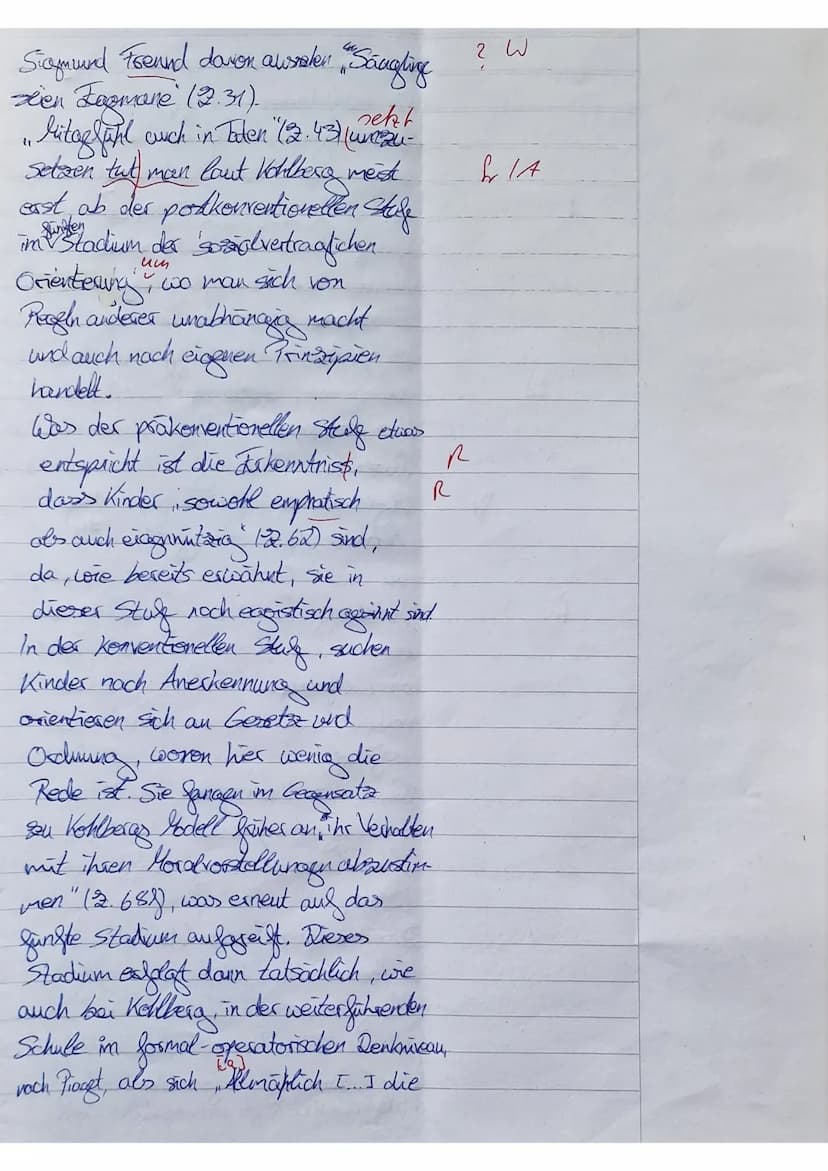 Siegmund Freund davon ausraten „Säuglinge ? W
seien Egomane" (Z.31).
setzt
„Mitgefühl auch in Taten" (Z.43) umzu-
setzen tut man laut Kohlberg meist
erst ab der postkonventionellen Stufe
fünften
im Stadium der 'sozialvertraglichen
um
Orientierung', wo man sich von
Regeln anderer unabhängig macht
und auch nach eigenen Prinzipien
handelt.
Was der präkonventionellen Stufe etwas
entspricht ist die Erkenntniss, R
dass Kinder „sowohl emphatisch R
als auch eigennützig" (Z.62) sind,
da, wie bereits erwähnt, sie in
dieser Stufe noch egoistisch gesinnt sind.
In der konventionellen Stufe, suchen
Kinder nach Anerkennung und
orientieren sich an Gesetz und
Ordnung, woron hier wenig die
Rede ist. Sie fangen im Gegensatz
zu Kohlbergs Modell früher an, „ihr Verhalten
mit ihren Moralvorstellungen abzustim-
men" (Z.68), was erneut auf das
fünfte Stadium aufgreift. Dieses
Stadium erfolgt dann tatsächlich, wie
auch bei Kohlberg, in der weiterführenden
Schule im formal-operatorischen Denkniveau,
[a]
nach Piaget, als sich „Allmählich [...] die